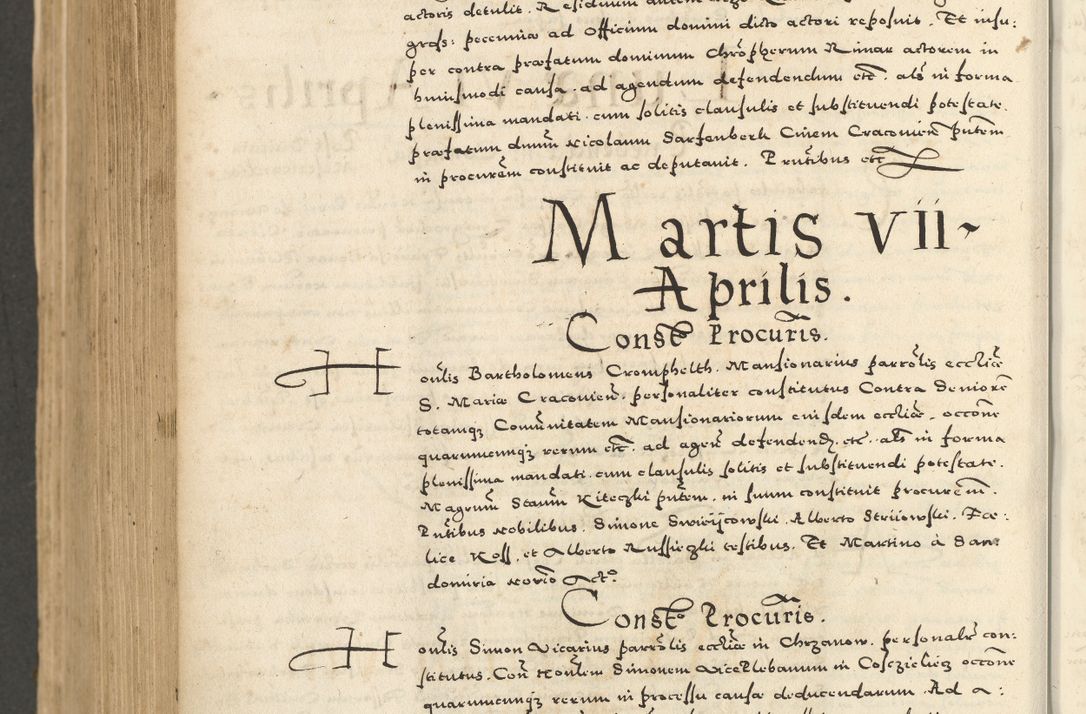 actoris detulit. Residuum
gross: pecuniæ ad Officium domini dicto actori reposuit. Et insu:
per contra præfatum dominum Chrõpherum Rimar actorem in
huiusmodi causa. ad agendum defendendum etc̃. als̃ in forma
plenissima mandati. cum solitis clausulis et substituendi potestate.
præfatum dnum̃ Nicolaum Sarfenberk Ciuem Cracouieñ putem̃
in procurem̃ constituit ac deputauit. Prutibus etc
Martis VII
Aprilis.
Const Procuris.
Honlis Bartholomeus Cromphelth. Mansionarius parrõlis eccliæ
S. Mariæ Cracouieñ. personaliter constitutus Contra Seniorẽ
totamq3 Comũnitatem Mansionariorum eiusdem eccliæ. occone
quarumcunq3 rerum etc̃. ad ageñ defendend3. etc. als̃ in forma
plenissima mandati. cum clausulis solitis et substituendi potestate.
Magrum̃ Stanm̃ Kiteczki putem̃. in suum constituit procurem̃.
Putibus Nobilibus. Simone Swirijcowski. Alberto Strijowski. Fæ:
lice Koss. et Alberto Russieczki testibus. Et Martino à San:
domiria Norio Acto
Const Procuris.
Honlis Simon Vicarius parrõlis eccliæ in Chrzanow. personalr̃ con:
stitutus. Con̄ Honlem Simonem VicePlebanum in Cosczielecz occone
quarumcunq3 rerum in processu causæ deducendarum. Ad a: